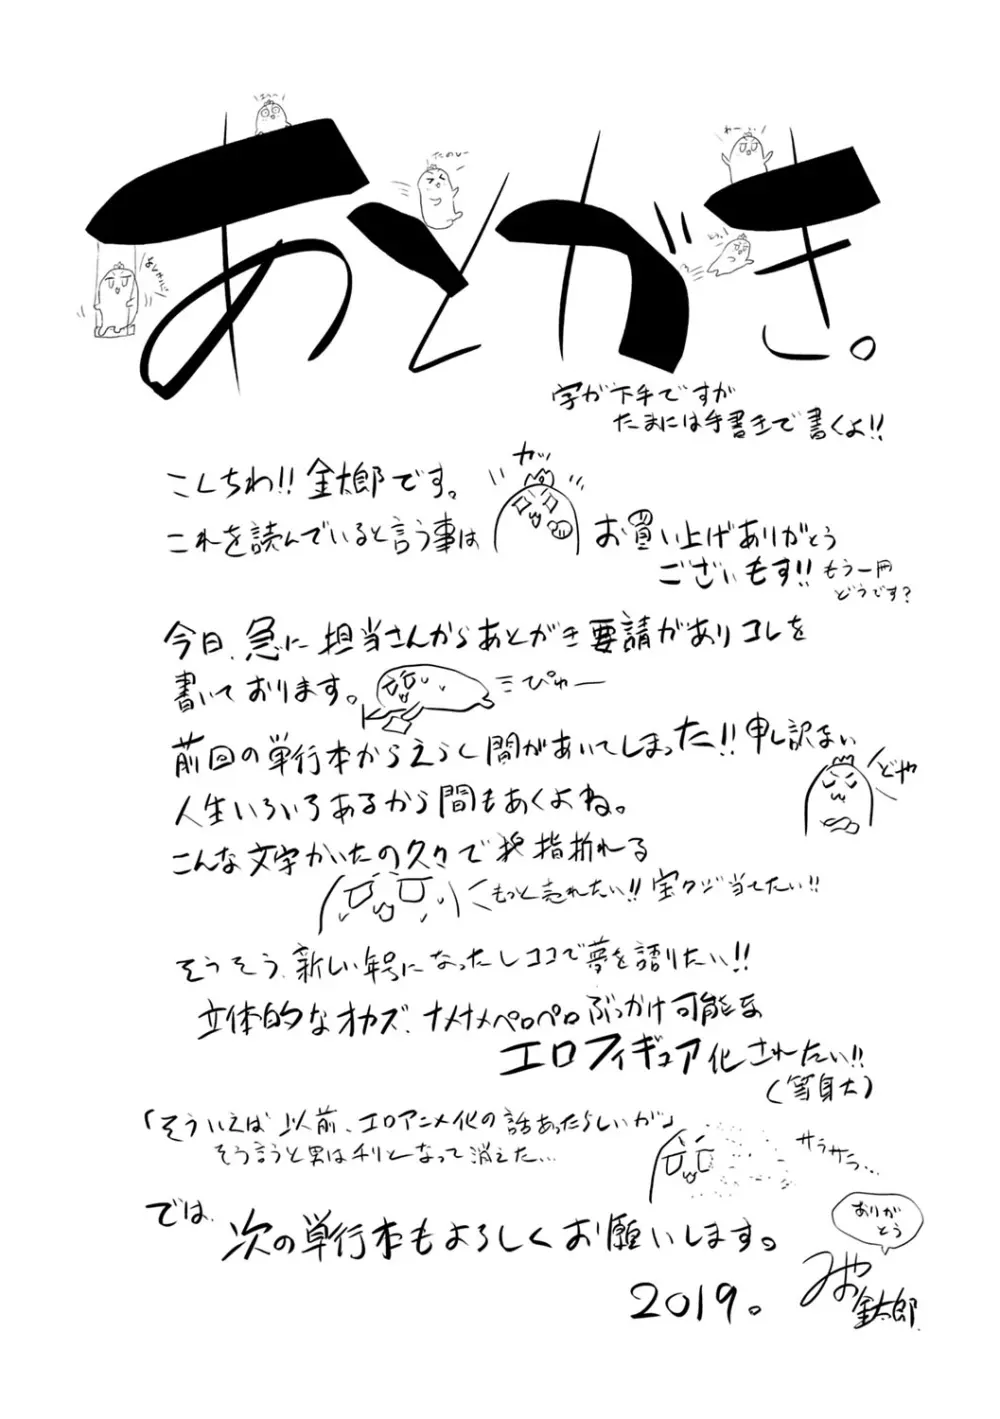 あとがき。
たのしー
わーい
字が下手ですが
たまには手書きで書くよ!!
こんちわ!! 金太郎です。
カッ
これを読んでいると言う事は
お買い上げありがとう
ございもす!!
もう一冊
どうです?
今日、急に担当さんからあとがき要請がありコレを
書いております。
ぴゅー
前回の単行本からえらく間があいてしまった!! 申し訳ない
どや
人生いろいろあるから間もあくよね。
こんな文字かいたの久々で指折れる
もっと売れたい!! 宝クジ当てたい!!
そうそう、新しい年号になったしココで夢を語りたい!!
立体的なオカズ、ナメナメペロペロぶっかけ可能な
エロフィギュア化されたい!!
(等身大)
「そういえば以前、エロアニメ化の話あったらしいが」
そう言うと男はチリとなって消えた…
サラサラ…
では、
次の単行本もよろしくお願いします。
ありがとう
2019。
みやお
金太郎